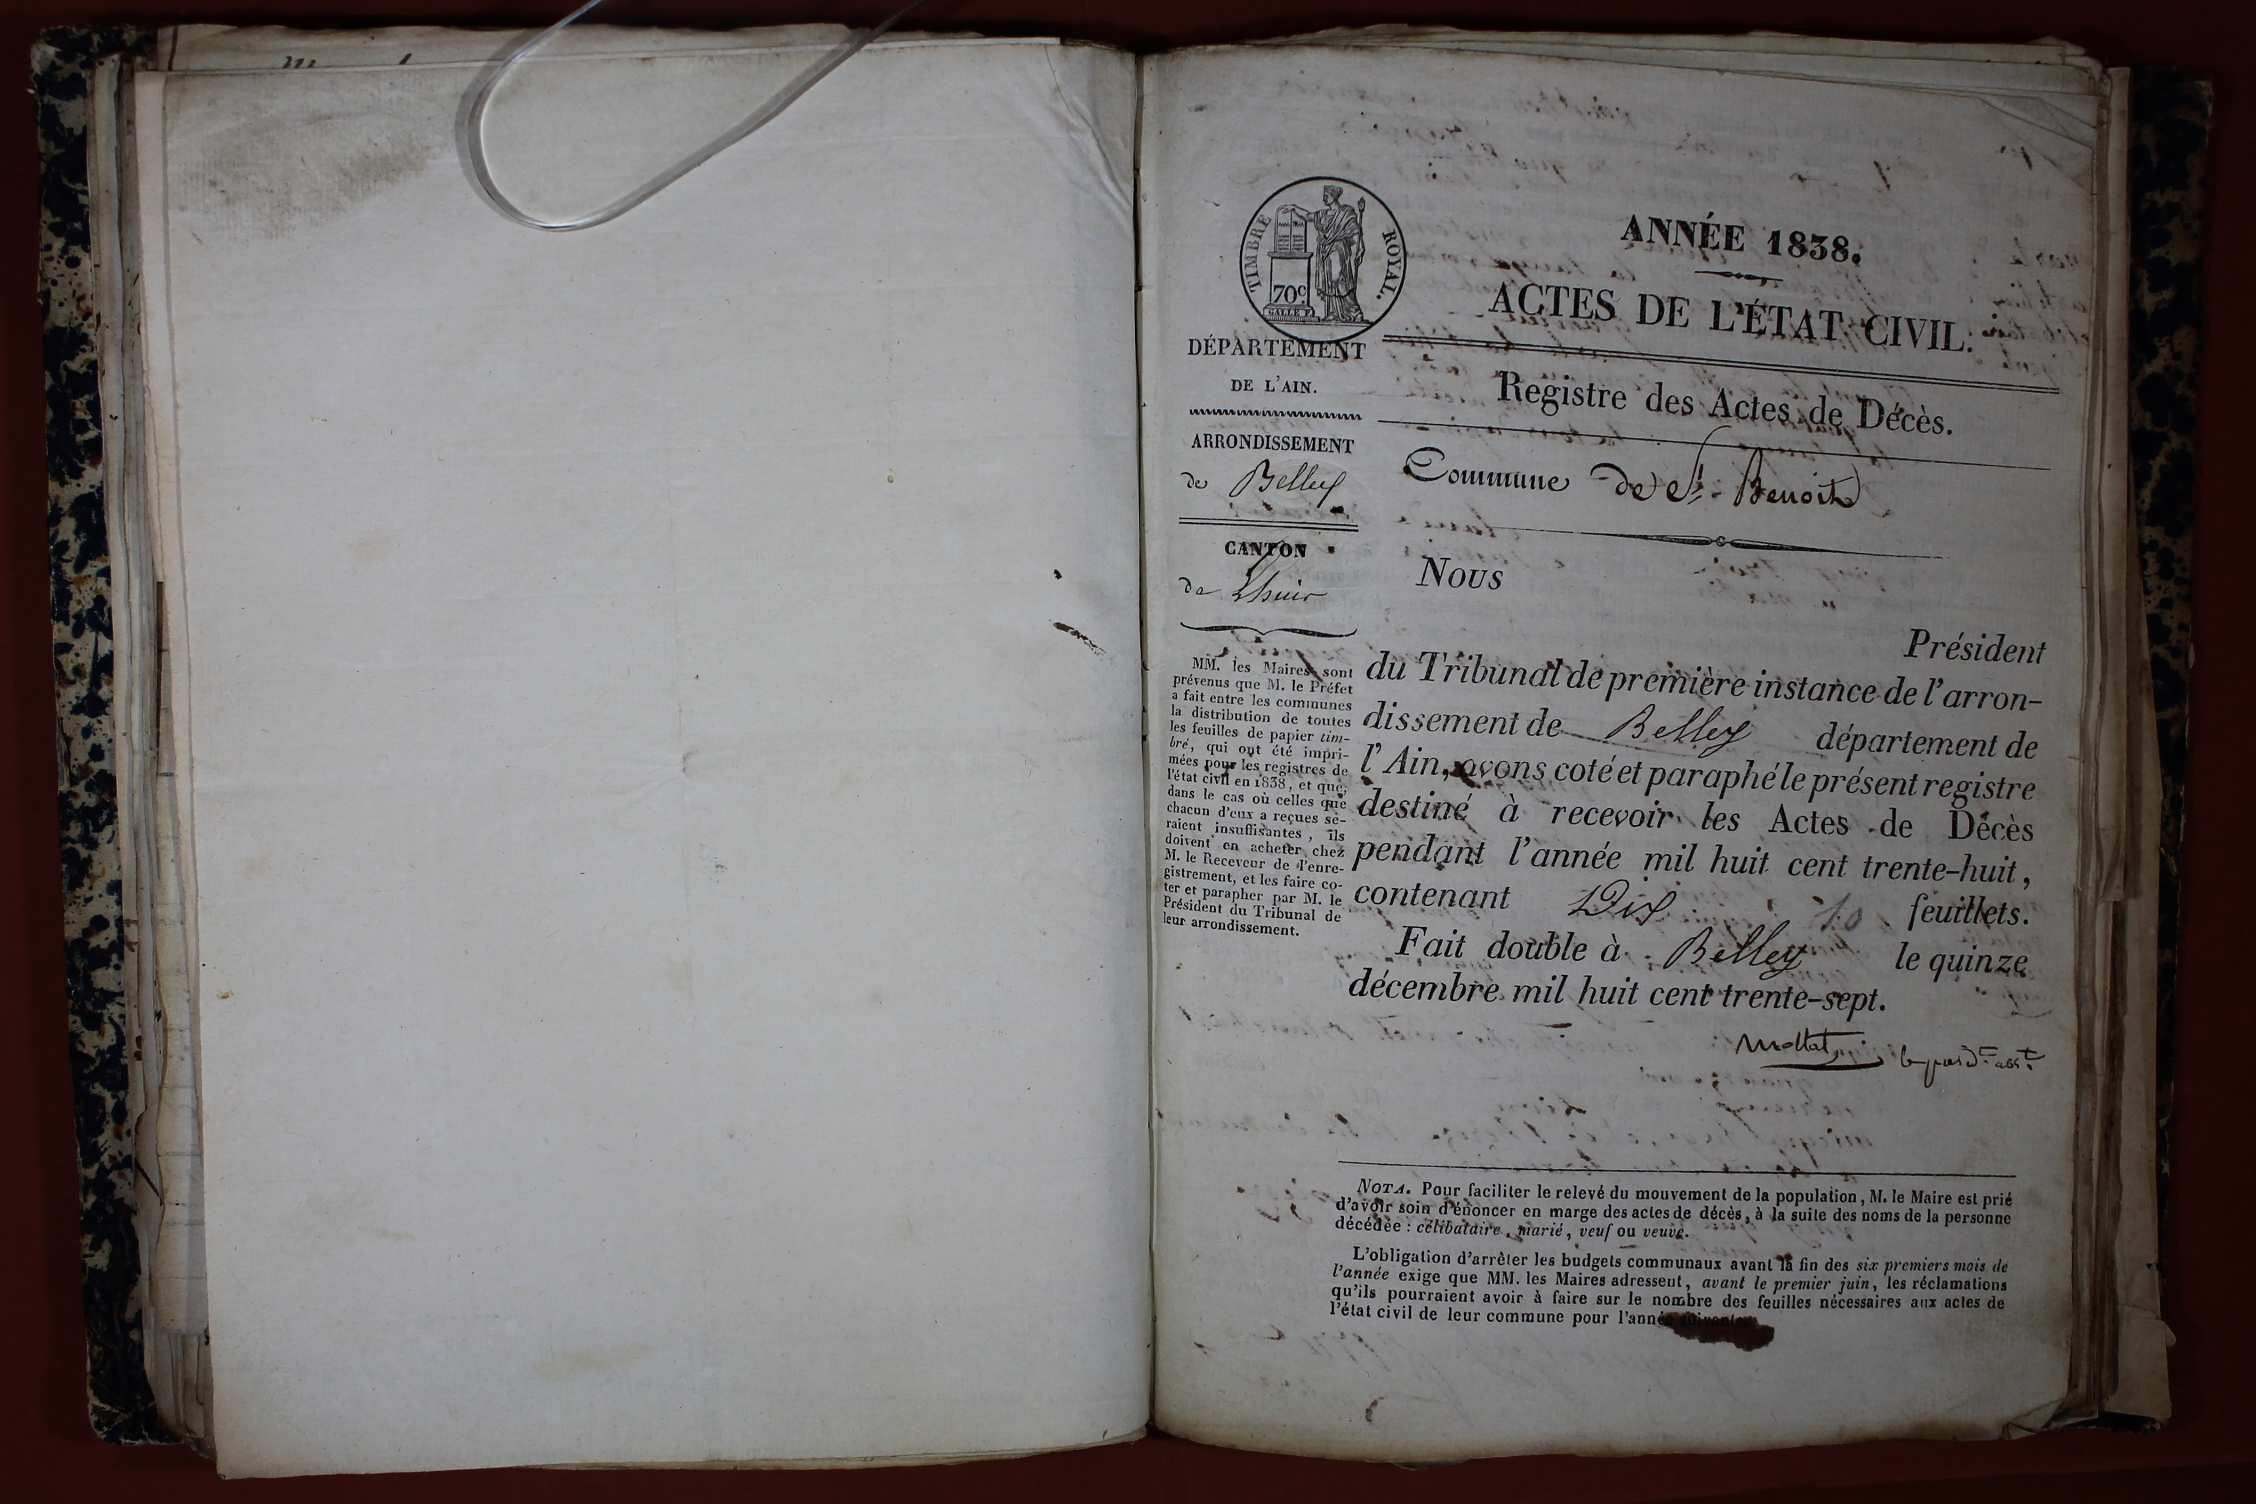 TIMBRE ROYAL.
70c
GALLE F.
DÉPARTEMENT
DE L'AIN.
ARRONDISSEMENT
de Belley
CANTON
de Lhuis
MM. les Maires sont
prévenus que M. le Préfet
a fait entre les communes
la distribution de toutes
les feuilles de papier tim-
bré, qui ont été impri-
mées pour les registres de
l'état civil en 1838, et que,
dans le cas où celles que
chacun d'eux a reçues se-
raient insuffisantes, ils
doivent en acheter chez
M. le Receveur de l'enre-
gistrement, et les faire co-
ter et parapher par M. le
Président du Tribunal de
leur arrondissement.
ANNÉE 1838.
ACTES DE L'ÉTAT CIVIL.
Registre des Actes de Décès.
Commune de St. Benoit
Nous
Président
du Tribunal de première instance de l'arron-
dissement de Belley département de
l'Ain, avons coté et paraphé le présent registre
destiné à recevoir les Actes de Décès
pendant l'année mil huit cent trente-huit,
contenant Dix 10 feuillets.
Fait double à Belley le quinze
décembre mil huit cent trente-sept.
Mollat
NOTA. Pour faciliter le relevé du mouvement de la population, M. le Maire est prié
d'avoir soin d'énoncer en marge des actes de décès, à la suite des noms de la personne
décédée : célibataire, marié, veuf ou veuve.
L'obligation d'arrêter les budgets communaux avant la fin des six premiers mois de
l'année exige que MM. les Maires adressent, avant le premier juin, les réclamations
qu'ils pourraient avoir à faire sur le nombre des feuilles nécessaires aux actes de
l'état civil de leur commune pour l'année suivante.